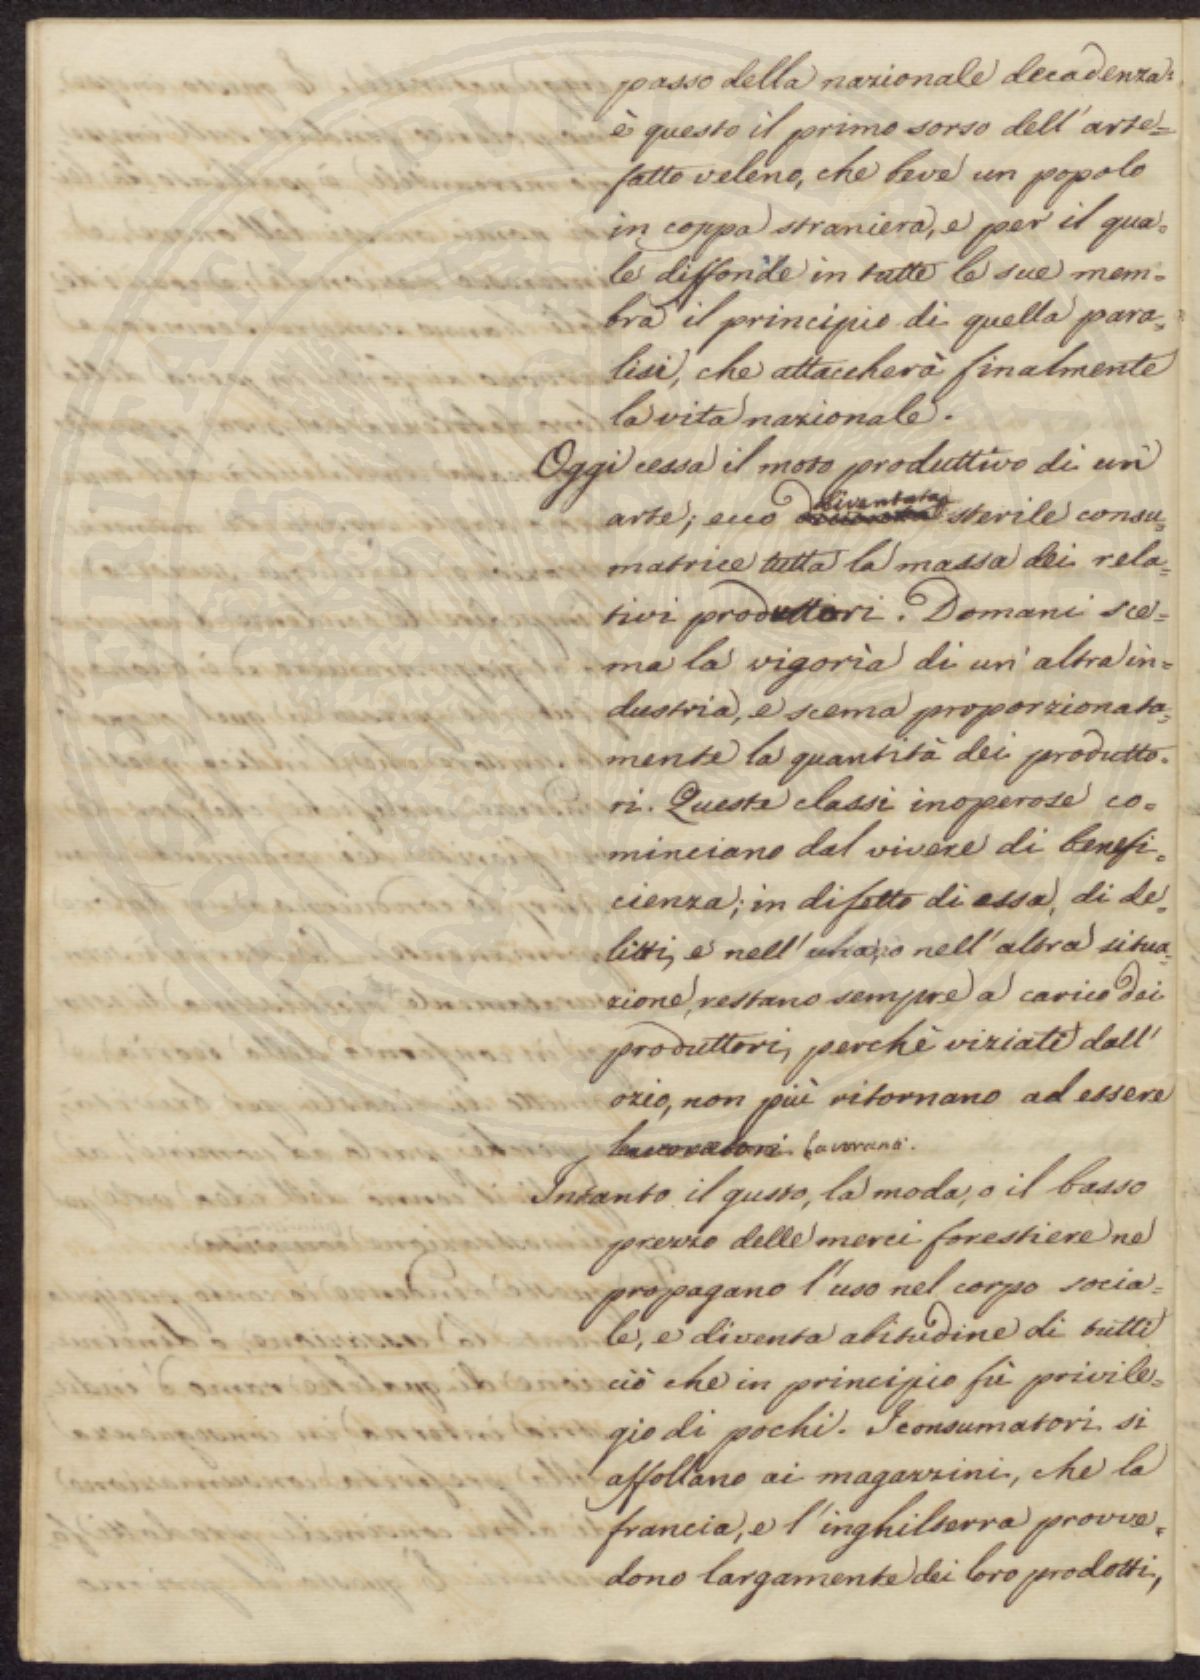 passo della nazionale decadenza:
è questo il primo sorso dell'arte=
fatto veleno, che beve un popolo
in coppa straniera, e per il qua=
le diffonde in tutte le sue mem=
bra il principio di quella para=
lisi, che attaccherà finalmente
la vita nazionale.
Oggi cessa il moto produttivo di un'
arte; ecco diventata sterile consu=
matrice tutta la massa dei rela=
tivi produttori. Domani sce=
ma la vigoria di un'altra in=
dustria, e scema proporzionata=
mente la quantità dei produtto=
ri. Queste classi inoperose co=
minciano dal vivere di benefi=
cienza; in difetto di essa, di de=
litti, e nell'una, o nell'altra situa=
zione, restano sempre a carico dei
produttori, perchè viziati dall'
ozio, non più ritornano ad essere
lavoratori.
Intanto il gusto, la moda, o il basso
prezzo delle merci forestiere ne
propagano l'uso nel corpo socia=
le, e diventa abitudine di tutti
ciò che in principio fù privile=
gio di pochi. I consumatori si
affollano ai magazzini, che la
francia, e l'inghilterra provve=
dono largamente dei loro prodotti,